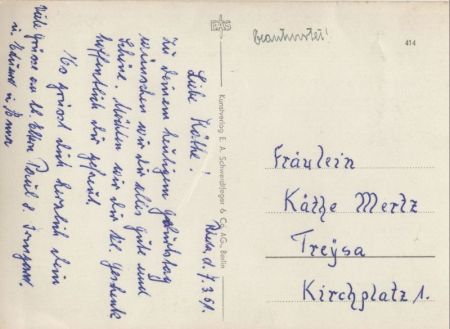 Beantwortet!
414
Kunstverlag E. A. Schwerdtfeger & Co. AG., Berlin
d. 7.3.61.
Liebe Käthe!
Zu deinem heutigen Geburtstag
wünschen wir dir alles gute und
Schöne. Möchten wir dir kl. Geschenk
hoffentlich dir gefreut.
grüsst dich herzlich dein
Viele Grüsse an lb. Eltern Paul
u.
Fräulein
Käthe Mertz
Treysa
Kirchplatz 1.